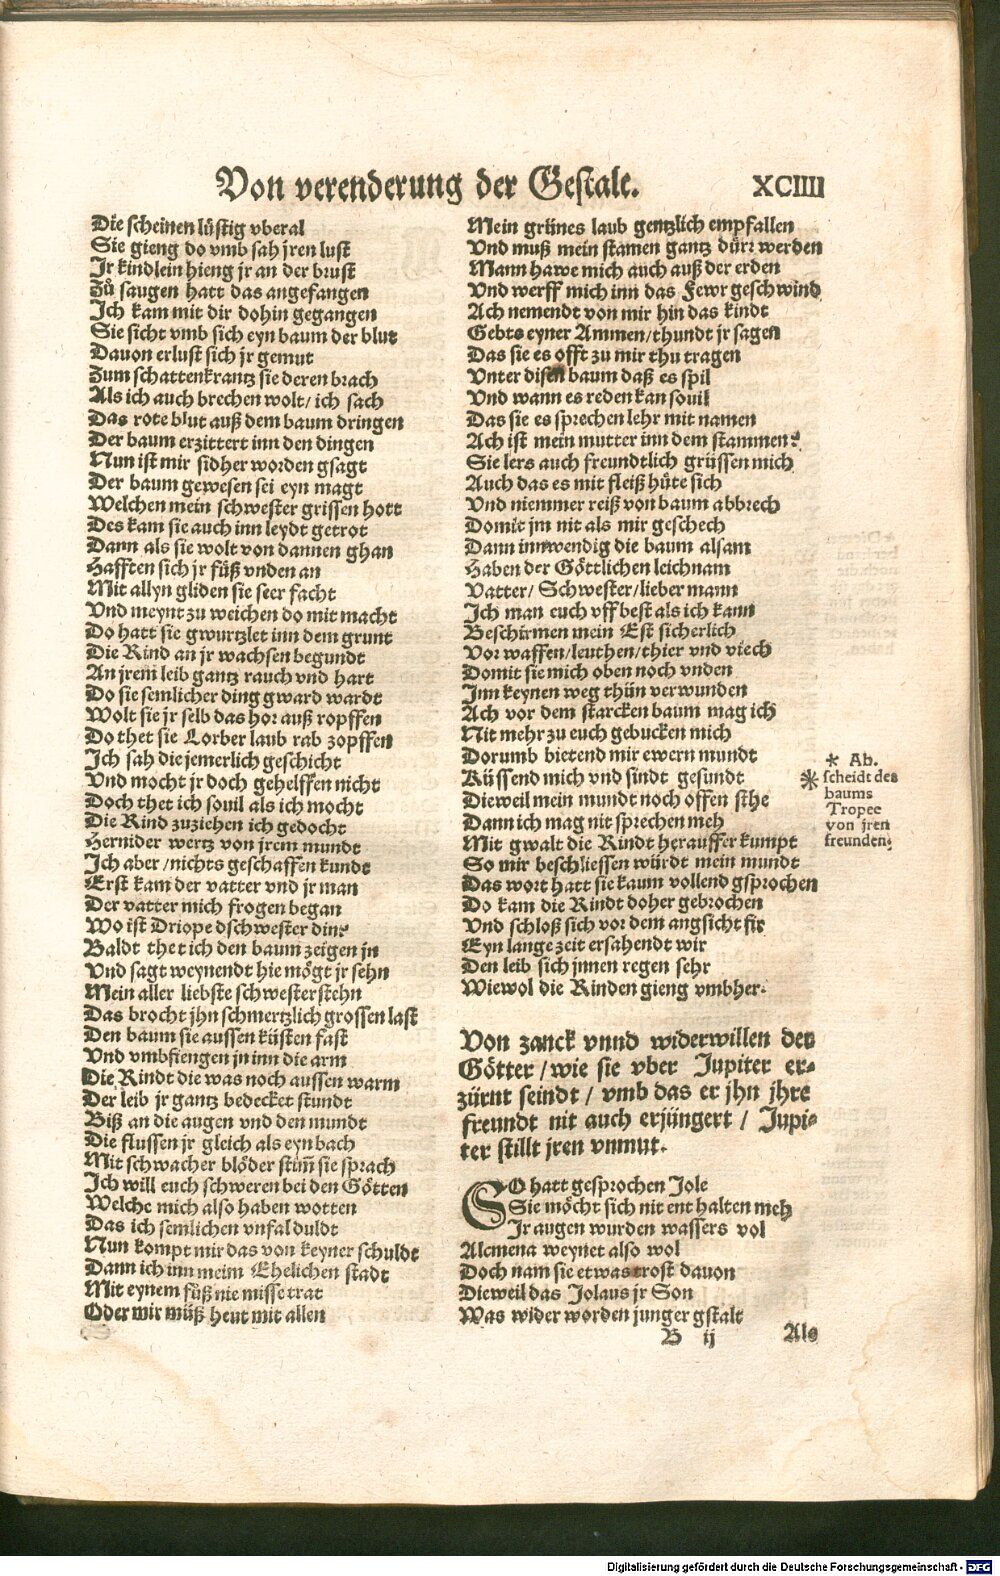 Von verenderung der Gestalt.
XCIIII
Die scheinen lüstig vberal
Sie gieng do vmb sah jren lust
Jr kindlein hieng jr an der brust
Zů saugen hatt das angefangen
Ich kam mit dir dohin gegangen
Sie sicht vmb sich eyn baum der blut
Dauon erlust sich jr gemut
Zum schattenkrantz sie deren brach
Als ich auch brechen wolt/ ich sach
Das rote blut auß dem baum dringen
Der baum erzittert inn den dingen
Nun ist mir sidher worden gsagt
Der baum gewesen sei eyn magt
Welchen mein schwester grissen hott
Des kam sie auch inn leydt getrot
Dann als sie wolt von dannen ghan
Hafften sich jr füß vnden an
Mit allyn gliden sie seer facht
Vnd meynt zu weichen do mit macht
Do hatt sie gwurtzlet inn dem grunt
Die Rind an jr wachsen begundt
An jrem leib gantz rauch vnd hart
Do sie semlicher ding gward wardt
Wolt sie jr selb das hor auß ropffen
Do thet sie Lorber laub rab zopffen
Ich sah die jemerlich geschicht
Vnd mocht jr doch gehelffen nicht
Doch thet ich souil als ich mocht
Die Rind zuziehen ich gedocht
Hernider wertz von jrem mundt
Ich aber/nichts geschaffen kundt
Erst kam der vatter vnd jr man
Der vatter mich frogen began
Wo ist Driope dschwester din?
Baldt thet ich den baum zeigen jn
Vnd sagt weynendt hie mögt jr sehn
Mein aller liebste schwester stehn
Das brocht jhn schmertzlich grossen last
Den baum sie aussen küsten fast
Vnd vmbfiengen jn inn die arm
Die Rindt die was noch aussen warm
Der leib jr gantz bedecket stundt
Biß an die augen vnd den mundt
Die flussen jr gleich als eyn bach
Mit schwacher blöder stim̄ sie sprach
Ich will euch schweren bei den Götten
Welche mich also haben wotten
Das ich semlichen vnfal duldt
Nun kompt mir das von keyner schuldt
Dann ich inn meim Ehelichen stadt
Mit eynem füß nie misse trat
Oder mir můß heut mit allen
Mein grünes laub gentzlich empfallen
Vnd muß mein stamen gantz dürr werden
Mann hawe mich auch auß der erden
Vnd werff mich inn das Fewr geschwind
Ach nemendt von mir hin das kindt
Gebts eyner Ammen/thundt jr sagen
Das sie es offt zu mir thu tragen
Vnter disen baum daß es spil
Vnd wann es reden kan souil
Das sie es sprechen lehr mit namen
Ach ist mein mutter inn dem stammen?
Sie lers auch freundtlich grüssen mich
Auch das es mit fleiß hüte sich
Vnd niemmer reiß von baum abbrech
Domit jm nit als mir geschech
Dann innwendig die baum alsam
Haben der Göttlichen leichnam
Vatter/ Schwester/lieber mann
Ich man euch vff best als ich kann
Beschirmen mein Est sicherlich
Vor waffen/leuthen/thier vnd viech
Domit sie mich oben noch vnden
Inn keynen weg thün verwunden
Ach vor dem starcken baum mag ich
Nit mehr zu euch gebucken mich
Dorumb bietend mir ewern mundt
Küssend mich vnd sindt gesundt
Dieweil mein mundt noch offen sthe
Dann ich mag nit sprechen meh
Mit gwalt die Rindt herauffer kumpt
So mir beschliessen würdt mein mundt
Das wort hatt sie kaum vollend gsprochen
Do kam die Rindt doher gebrochen
Vnd schloß sich vor dem angsicht fir
Eyn lange zeit ersahendt wir
Den leib sich jnnen regen sehr
Wiewol die Rinden gieng vmbher.
* Ab.
scheidt des
baums
Tropee
von jren
freunden.
Von zanck vnnd widerwillen der
Götter/wie sie vber Jupiter er-
zürnt seindt/ vmb das er jhn jhre
freundt nit auch erjüngert/ Jupi-
ter stillt jren vnmut.
SO hatt gesprochen Jole
Sie möcht sich nit enthalten meh
Jr augen wurden wassers vol
Alcmena weynet also wol
Doch nam sie etwas trost dauon
Dieweil das Jolaus jr Son
Was wider worden junger gstalt
B ij
Als
Digitalisierung gefördert durch die Deutsche Forschungsgemeinschaft - DFG